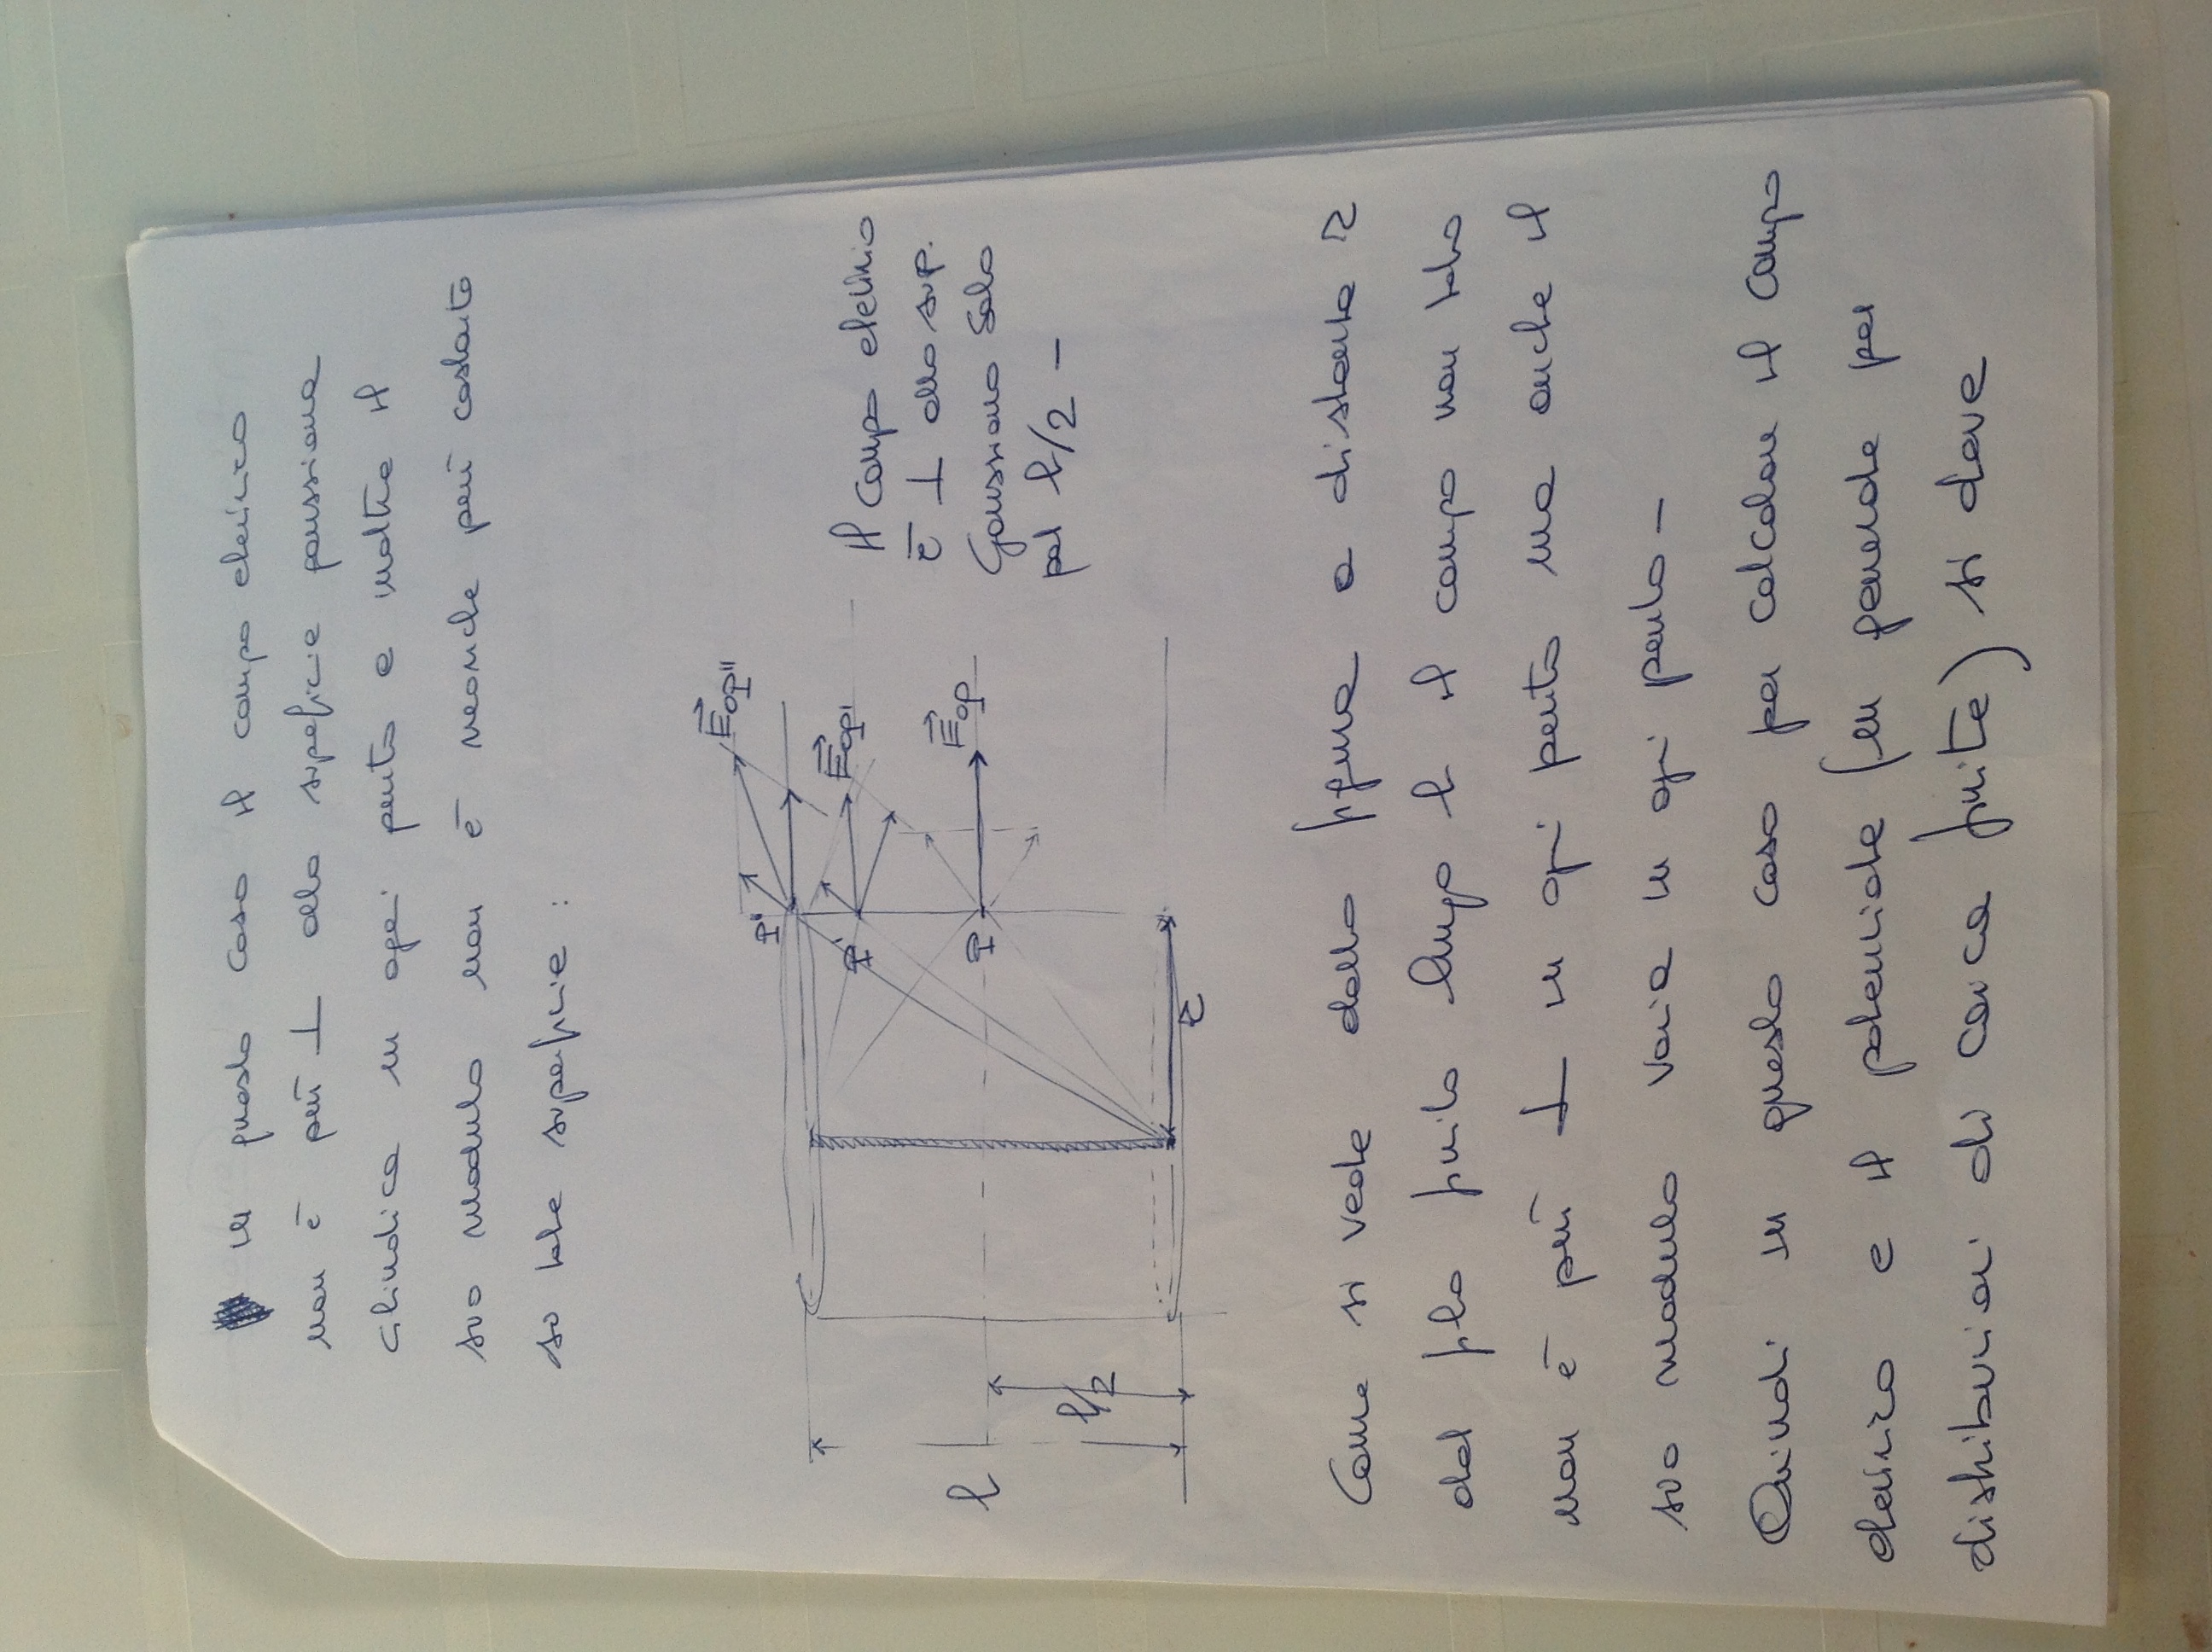 in questo caso il campo elettrico
non è più ⊥ alla supeficie gaussiana
cilindica in ogni punto e inoltre il
suo modulo non è neanche più costante
su tale superficie :
E⃗op''
P''
E⃗op'
P'
Il campo elettrico
è ⊥ alla sup.
Gaussiana solo
per l/2 –
E⃗op
P
l
l/2
r
Come si vede dalla figura a distanza r
dal filo finito lungo l il campo non solo
non è più ⊥ in ogni punto ma anche il
suo modulo varia in ogni punto –
Quindi in questo caso per calcolare il campo
elettrico e il potenziale (in generale per
distribuzioni di carica finite) si deve